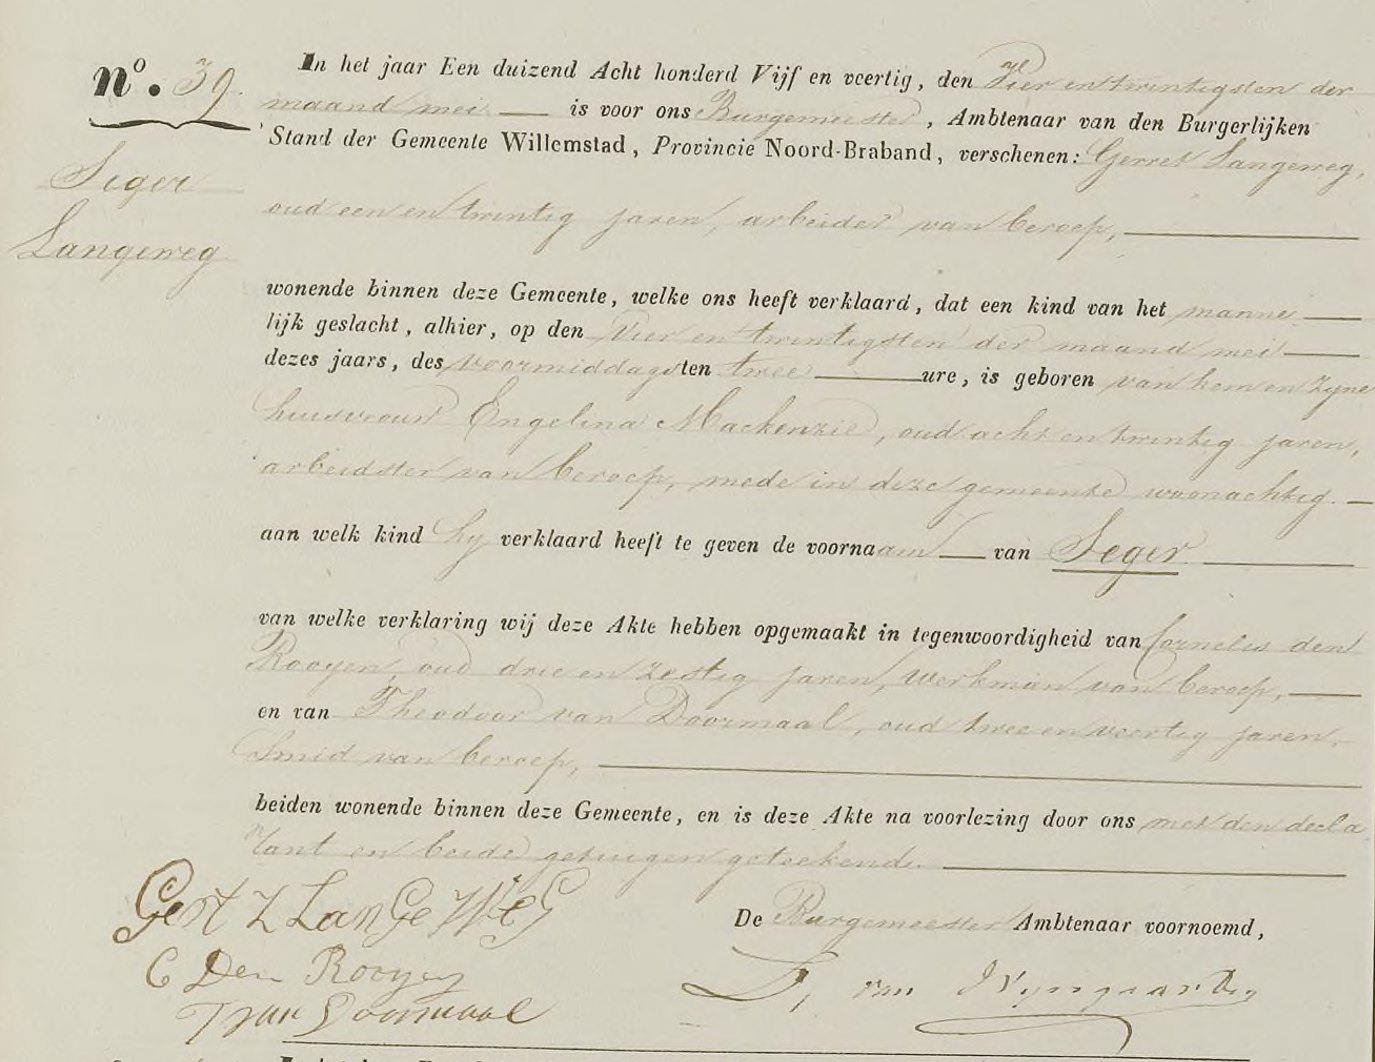 No. 39.
Seger
Langeweg
In het jaar Een duizend Acht honderd Vijf en veertig, den Vier en twintigsten der
maand mei is voor ons Burgemeester, Ambtenaar van den Burgerlijken
Stand der Gemeente Willemstad, Provincie Noord-Braband, verschenen: Gerret Langeweg,
oud een en twintig jaren, arbeider van beroep,
wonende binnen deze Gemeente, welke ons heeft verklaard, dat een kind van het manne
lijk geslacht, alhier, op den Vier en twintigsten der maand mei
dezes jaars, des voormiddags ten twee ure, is geboren van hem en zyne
huisvrouw Engelina Mackenzie, oud acht en twintig jaren,
arbeidster van beroep, mede in deze gemeente woonachtig.
aan welk kind hy verklaard heeft te geven de voornaam van Seger
van welke verklaring wij deze Akte hebben opgemaakt in tegenwoordigheid van Cornelis den
Rooyen, oud drie en zestig jaren, werkman van beroep,
en van Theodoor van Doormaal, oud twee en veertig jaren,
Smid van beroep,
beiden wonende binnen deze Gemeente, en is deze Akte na voorlezing door ons met den decla
rant en beide getuigen geteekend.
De Burgemeester Ambtenaar voornoemd,
Gert Z LanGeWeG
C Den Rooyen
T van Doormaal
D, van Wyngaarden